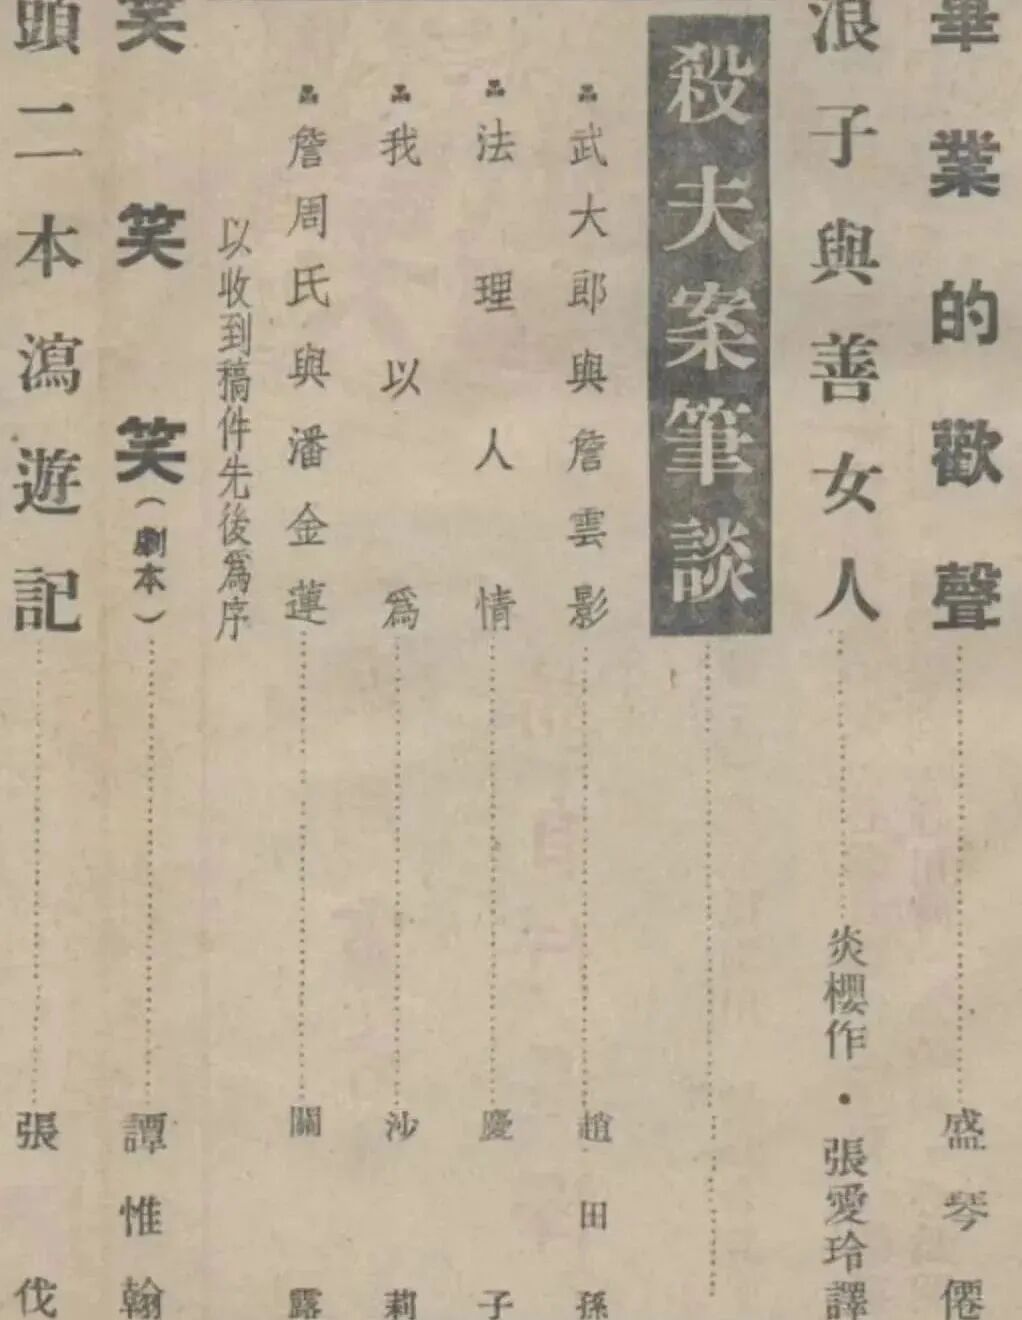 畢業的歡聲 盛琴僊
浪子與善女人 炎櫻作・張愛玲譯
殺夫案筆談
武大郎與詹雲影 趙田孫
法理人情 慶子
我以為 沙莉
詹周氏與潘金蓮 關露
以收到稿件先後為序
笑笑笑(劇本) 譚惟翰
頭二本瀉遊記 張伐